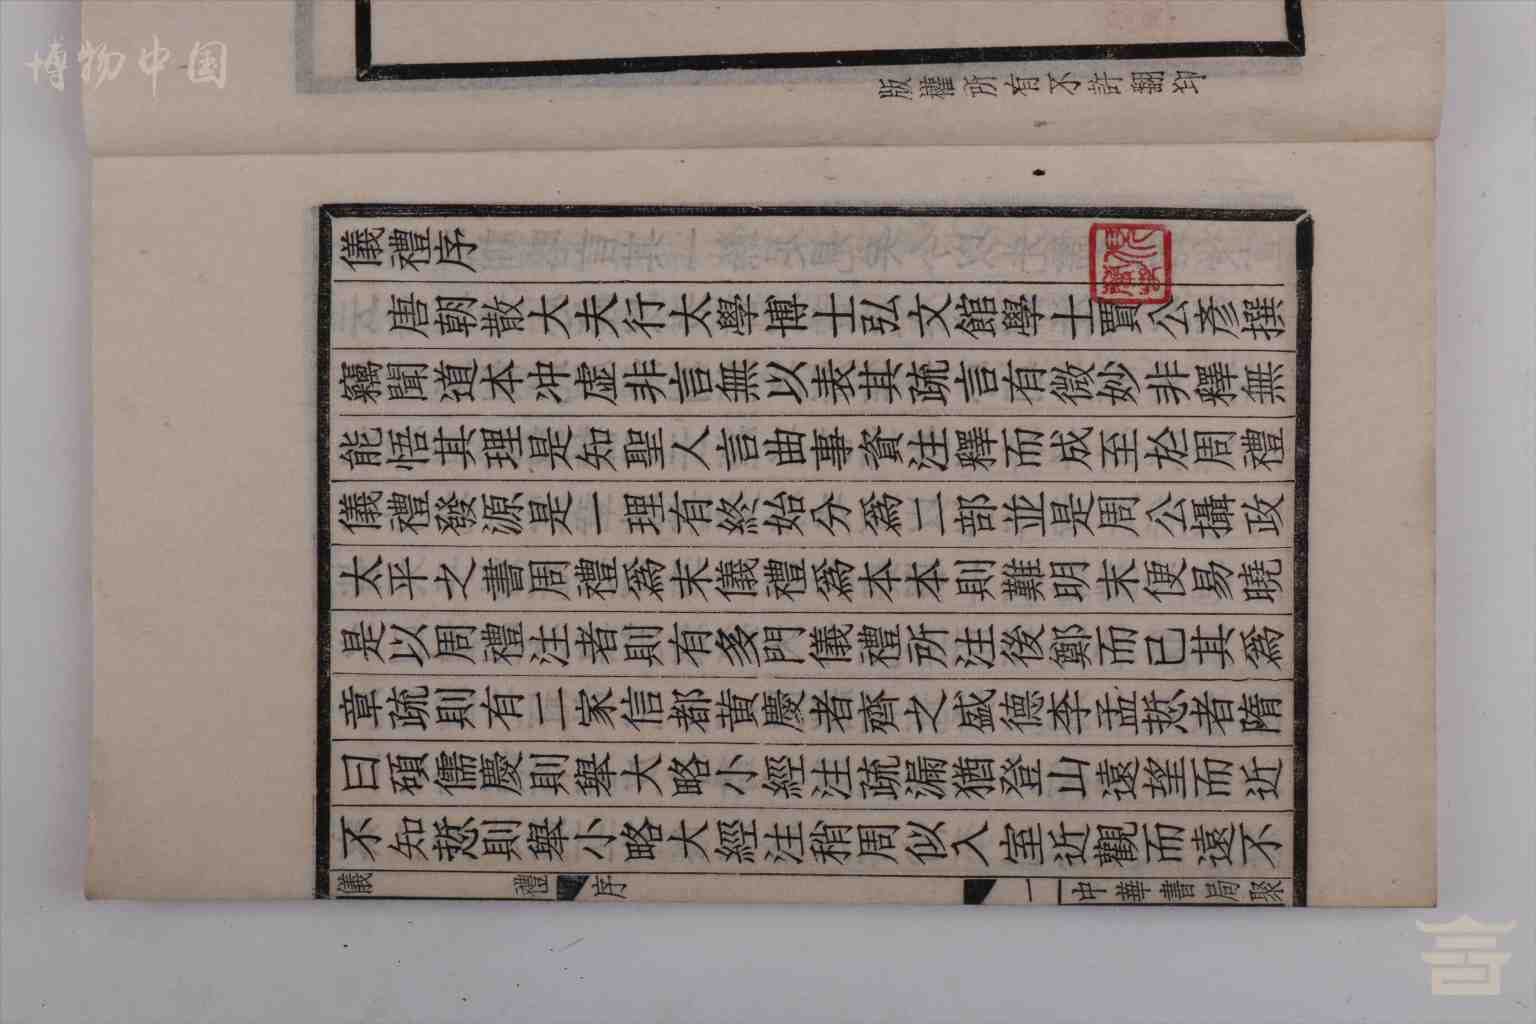 博物中国
版權所有不許翻印
儀禮序
唐朝散大夫行太學博士弘文館學士賈公彥撰
竊聞道本冲虛非言無以表其疏言有微妙非釋無
能悟其理是知聖人言曲事資注釋而成至於周禮
儀禮發源是一理有終始分爲二部並是周公攝政
太平之書周禮爲末儀禮爲本本則難明末便易曉
是以周禮注者則有多門儀禮所注後鄭而已其爲
章疏則有二家信都黃慶者齊之盛德李孟悊者隋
曰碩儒慶則舉大略小經注疏漏猶登山遠望而近
不知悊則舉小略大經注稍周似入室近觀而遠不
儀禮序 一 中華書局聚